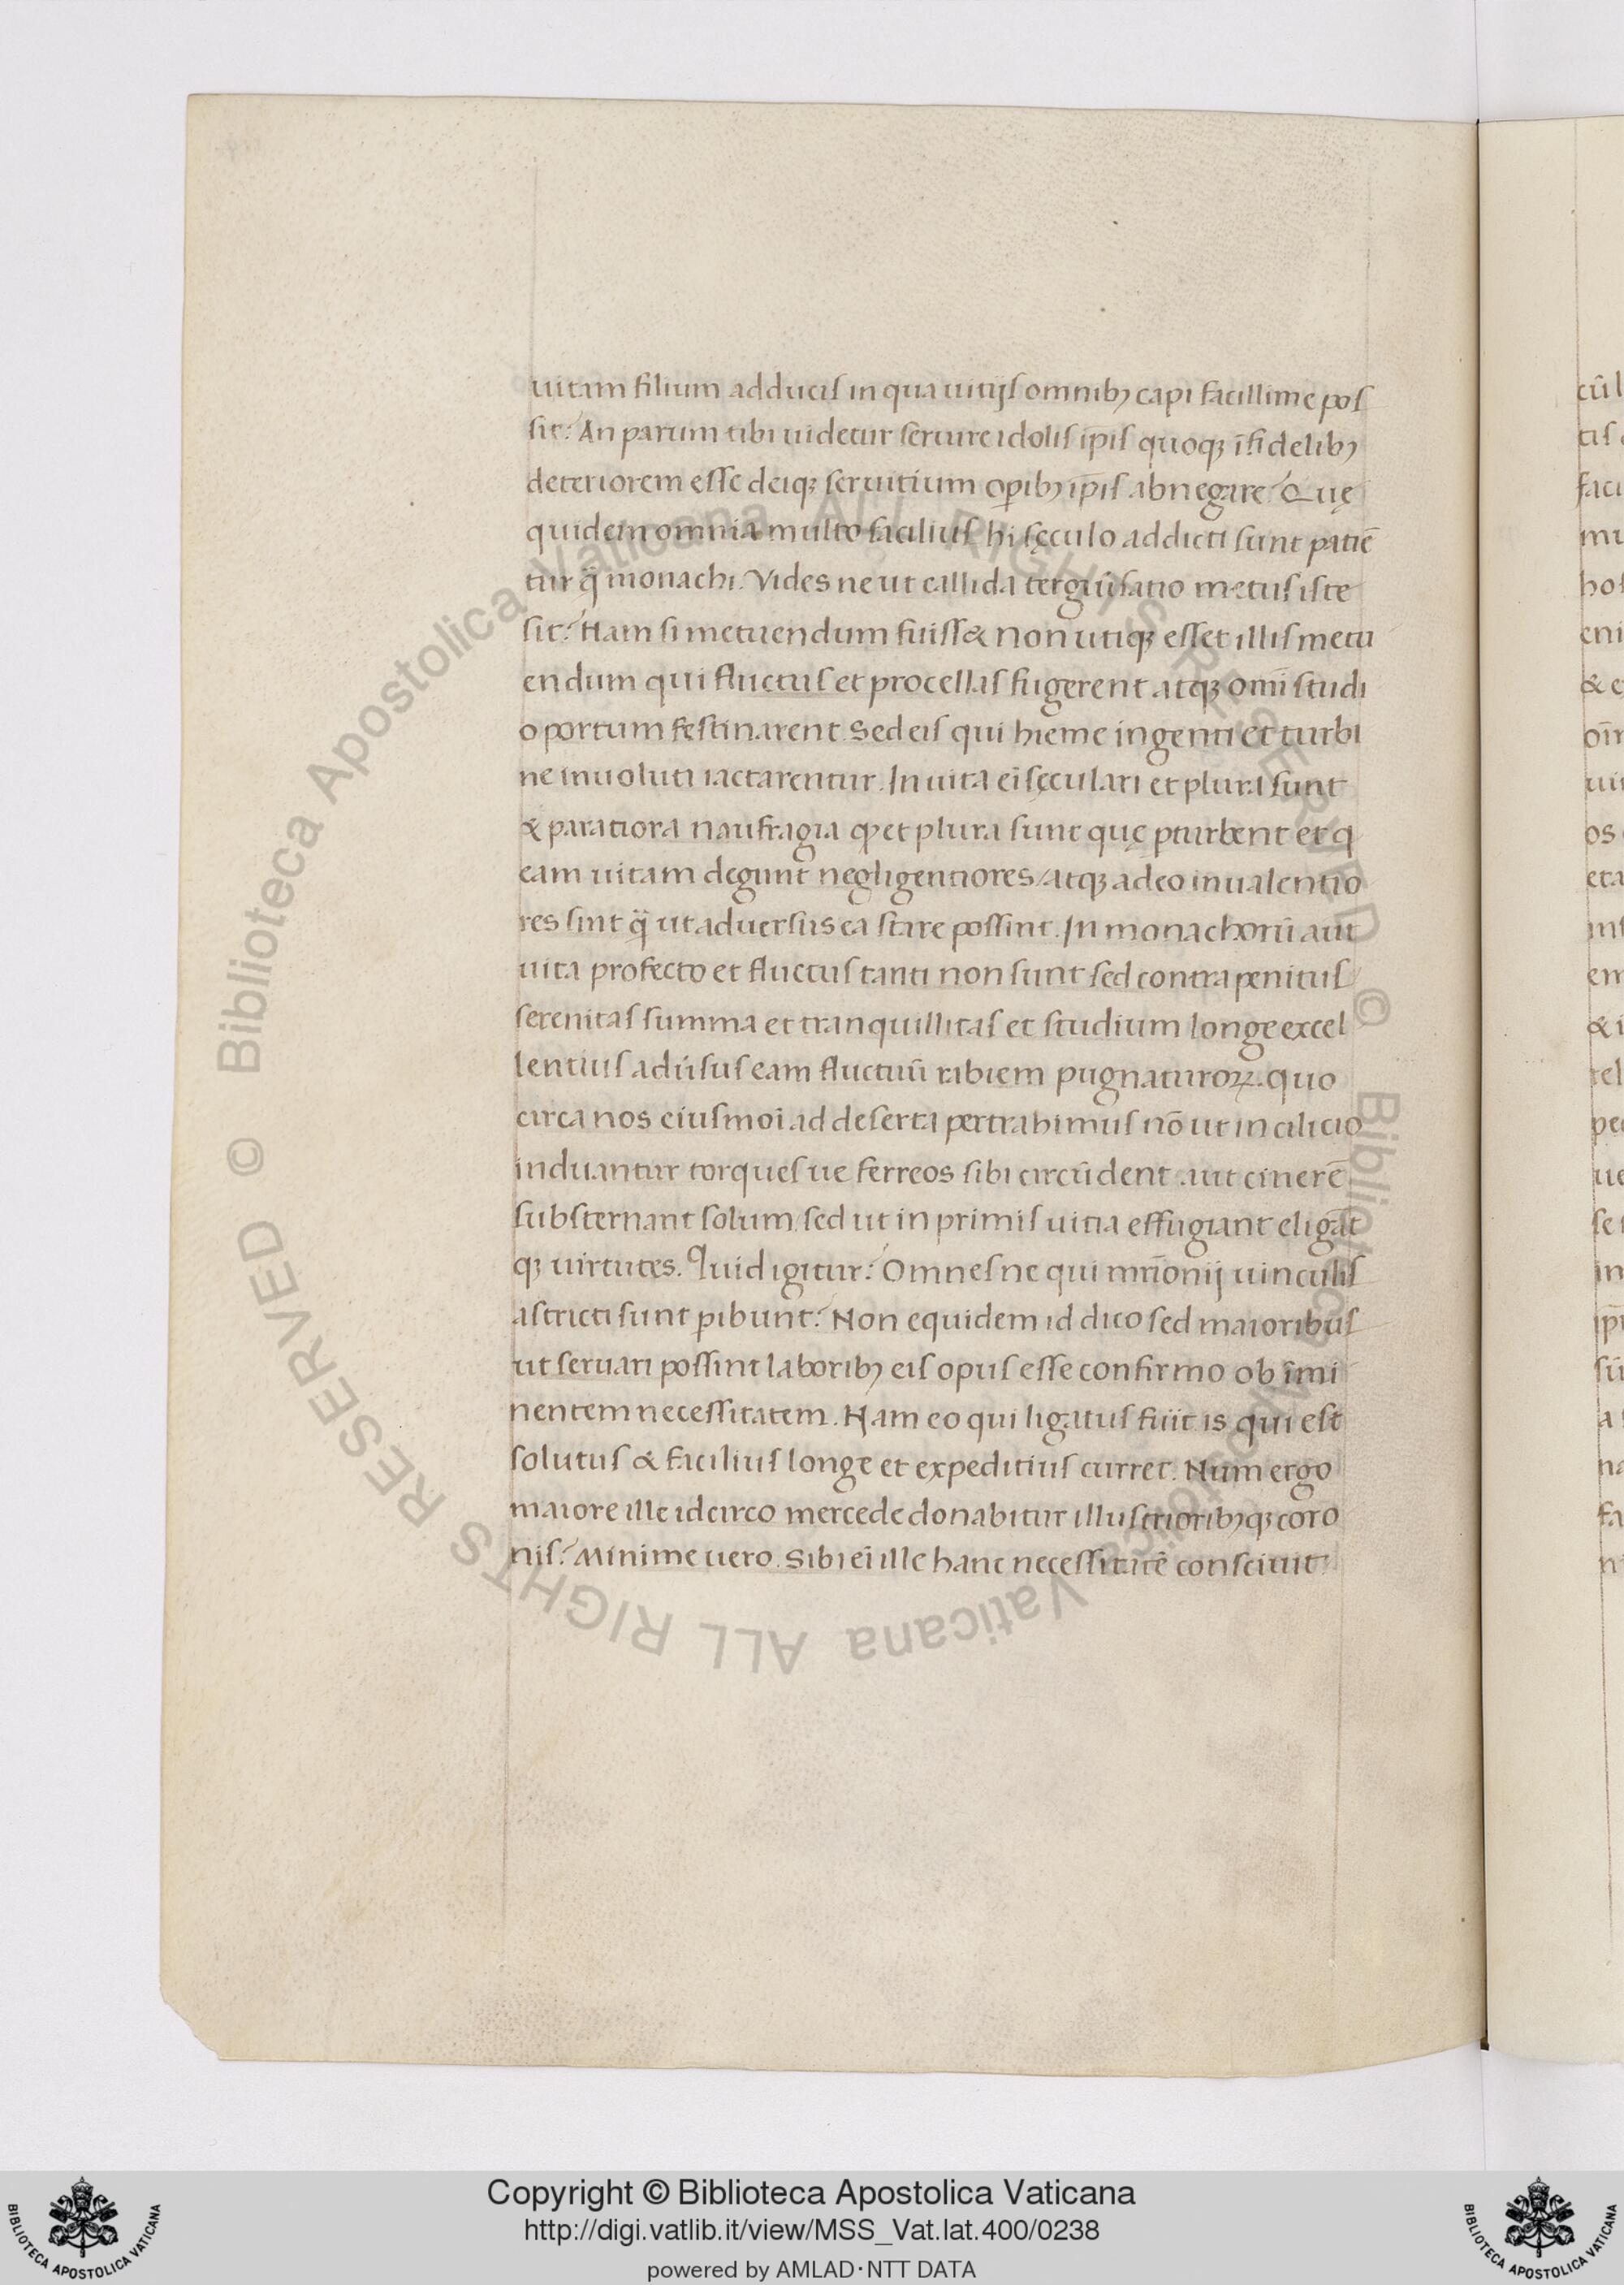 uitam filium adducis in qua uitijs omnibꝫ capi facillime pos
sit? An parum tibi uidetur seruire idolis ip̄is quoqꝫ īfidelibꝫ
deteriorem esse deiqꝫ seruitium oꝑibꝫ ip̄is abnegare? Quę
quidem omnia multo facilius hi sęculo addicti sunt patiē
tur q̈ monachi. Vides ne ut callida tergiūsatio metus iste
sit? Nam si metuendum fuiss& non utiqꝫ esset illis metu
endum qui fluctus et procellas fugerent atqꝫ omī studi
o portum festinarent. Sed eis qui hieme ingenti et turbi
ne inuoluti iactarentur. In uita ei᷄ sęculari et plura sunt
& paratiora naufragia ꝙ et plura sunt quę ꝑturbent et q
eam uitam degunt negligentiores / atqꝫ adeo inualentio
res sint q̈ ut aduersus ea stare possint. In monachorū aut̄
uita profecto et fluctus tanti non sunt sed contra penitus
serenitas summa et tranquillitas et studium longe excel
lentius adūsus eam fluctuū rabiem pugnaturoꝝ. quo
circa nos eiusmoī ad deserta pertrahimus nō ut in cilicio
induantur torques ue ferreos sibi circūdent aut cinerē
substernant solum / sed ut in primis uitia effugiant eligāt
qꝫ uirtutes. Quid igitur? Omnes ne qui mr̄ionij uinculis
astricti sunt ꝑibunt? Non equidem id dico sed maioribus
ut seruari possint laboribꝫ eis opus esse confirmo ob īmi
nentem necessitatem. Nam eo qui ligatus fuit is qui est
solutus & facilius longe et expeditius curret. Num ergo
maiore ille idcirco mercede donabitur illustrioribꝫqꝫ coro
nis? Minime uero. Sibi ei᷄ ille hanc necessitatē consciuit
Copyright © Biblioteca Apostolica Vaticana
http://digi.vatlib.it/view/MSS_Vat.lat.400/0238
powered by AMLAD·NTT DATA
BIBLIOTECA APOSTOLICA VATICANA
BIBLIOTECA APOSTOLICA VATICANA
© Biblioteca Apostolica Vaticana ALL RIGHTS RESERVED © Biblioteca Apostolica Vaticana ALL RIGHTS RESERVED